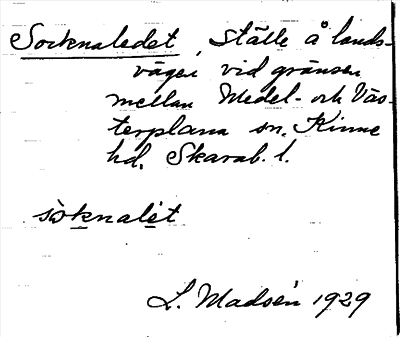 Socknaledet, Ställe å lands-
vägen vid gränsen
mellan Medel- och Väs-
terplana sn. Kinne
hd. Skarab. l.
sòknalét
L. Madsén 1929